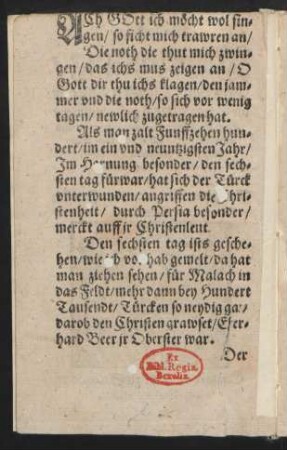 ACh GOtt ich möcht wol sin-
gen/ so ficht mich trawren an/
Die noth die thut mich zwin-
gen/das ichs mus zeigen an/O
Gott dir thu ichs klagen/den jam-
mer vnd die noth/so sich vor wenig
tagen/newlich zugetragen hat.
Als man zalt Funffzehen hun-
dert/im ein vnd neuntzigsten Jahr/
Im Hornung besonder/den sech-
sten tag fürwar/hat sich der Türck
vnterwunden/angriffen die Chri-
stenheit/ durch Persia besonder/
merckt auff jr Christenleut.
Den sechsten tag ists gesche-
hen/wie ich vor hab gemelt/da hat
man ziehen sehen/ für Malach in
das Feldt/mehr dann bey Hundert
Tausendt/Türcken so neydig gar/
darob den Christen grawset/Eber-
hard Beer jr Oberster war.
Der
Ex
Bibl. Regia
Berolin.